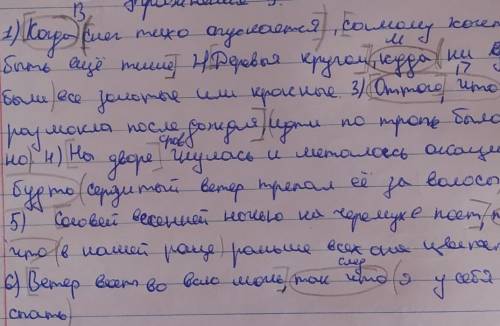 В
1) [Когда (снег тихо опускается), самому хоче
м
быть ещё тише] 2) [Деревья кругом], куда (ни
были) все золотые или красные. 3) [Оттого, что
размокла после дождя) (идти по тропе было
но) 4) [На дворе] гнулась и металась акаци
срав
будто (сердитый ветер трепал её за волосы
5) Соловей весенней ночью на черемухе поет,
что (в нашей роще) раньше всех она цветет
след
6) [Ветер воет во всю мочь], так что (я у себя
спать)